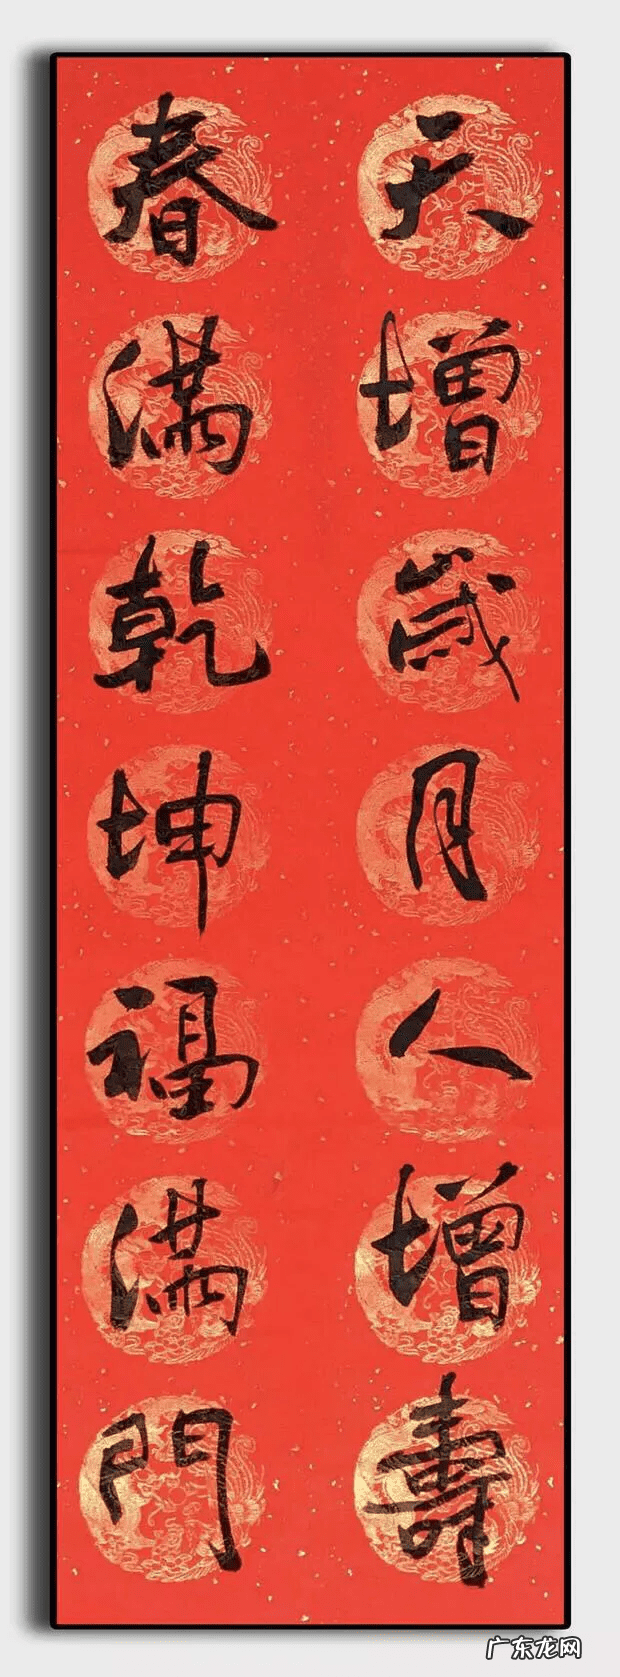 天增歲月人增壽
春滿乾坤福滿門
广东龙网